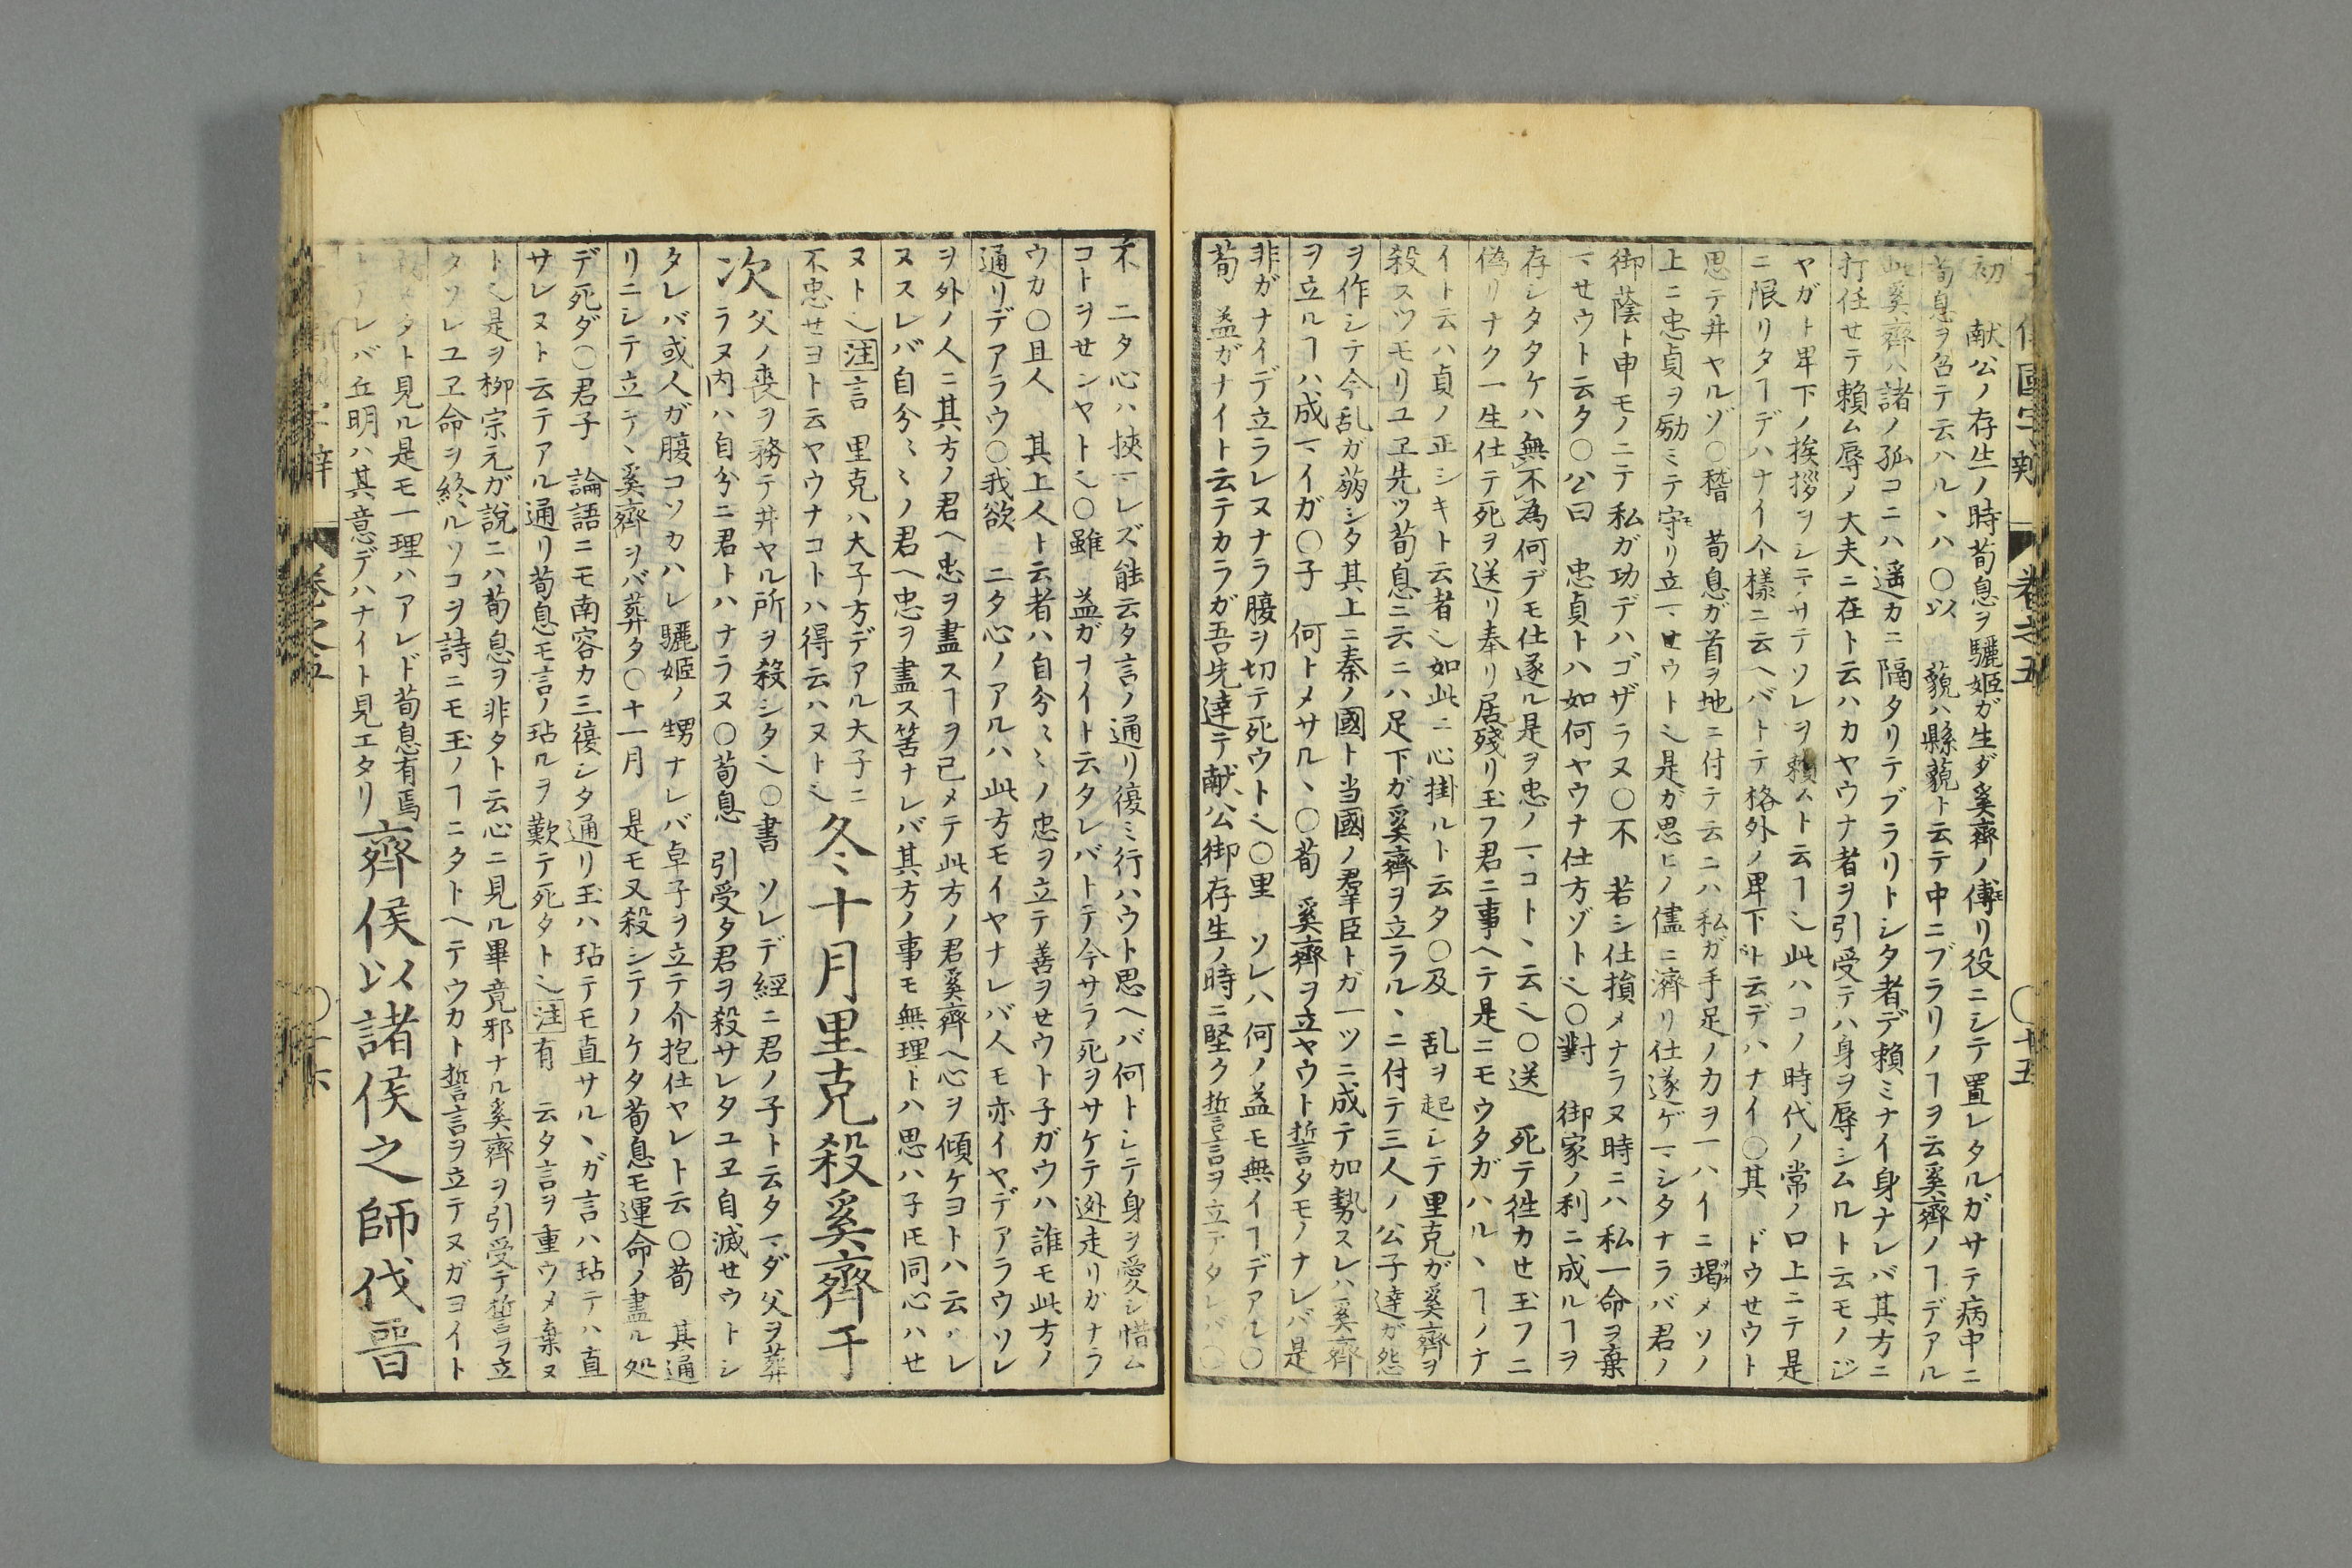 初 献公ノ存生ノ時荀息ヲ驪姫ガ生ダ奚齊ノ傅リ役ニシテ置レタルガサテ病中ニ
荀息ヲ召テ云ハル丶ハ○以 藐ハ縣藐ト云テ中ニブラリノヿヲ云奚齊ノヿデアル
此奚齊ハ諸ノ孤コニハ遥カニ隔タリテブラリトシタ者デ頼ミナイ身ナレバ其方ニ
打任せテ頼ム辱ノ大夫ニ在ト云ハカヤウナ者ヲ引受テハ身ヲ辱シムルト云モノジ
ヤガト卑下ノ挨拶ヲシテサテソレヲ頼ムト云ヿ也此ハコノ時代ノ常ノ口上ニテ是
ニ限リタヿデハナイ今樣ニ云ヘバトテ格外ノ卑下ト云デハナイ○其 ドウせウト
思テ井ヤルゾ○稽 荀息ガ首ヲ地ニ付テ云ニハ私ガ手足ノ力ヲ一ハイニ竭メソノ
上ニ忠貞ヲ励ミテ守リ立マせウト也是ガ思ヒノ儘ニ濟リ仕遂ゲマシタナラバ君ノ
御蔭ト申モノニテ私ガ功デハゴザラヌ○不 若シ仕損メナラヌ時ニハ私一命ヲ棄
マせウト云タ○公曰 忠貞トハ如何ヤウナ仕方ゾト也○對 御家ノ利ニ成ルヿヲ
存シタタケハ無不為何デモ仕遂ル是ヲ忠ノマコト丶云也○送 死テ徃カせ玉フニ
偽リナク一生仕テ死ヲ送リ奉リ居殘リ玉フ君ニ事ヘテ是ニモウタガハル丶ヿノナ
イト云ハ貞ノ正シキト云者也如此ニ心掛ルト云タ○及 乱ヲ起シテ里克ガ奚齊ヲ
殺スツモリユヱ先ツ荀息ニ云ニハ足下ガ奚齊ヲ立ラル丶ニ付テ三人ノ公子達ガ怨
ヲ作シテ今乱ガ萠シタ其上ニ秦ノ國ト当國ノ羣臣トガ一ツニ成テ加勢スレハ奚齊
ヲ立ルヿハ成マイガ○子 何トメサル丶○荀 奚齊ヲ立ヤウト誓タモノナレバ是
非ガナイデ立ラレヌナラ腹ヲ切テ死ウト也○里 ソレハ何ノ益モ無イヿデアル○
荀 益ガナイト云テカラガ吾先達テ献公御存生ノ時ニ堅ク誓言ヲ立テタレバ○
不 二タ心ハ挾マレズ能云タ言ノ通リ復ミ行ハウト思ヘバ何トシテ身ヲ愛シ惜ム
コトヲせンヤト也○雖 益ガナイト云タレバトテ今サラ死ヲサケテ迯走リガナラ
ウカ○且人 其上人ト云者ハ自分〻〻ノ忠ヲ立テ善ヲせウト子ガウハ誰モ此方ノ
通リデアラウ○我欲 二タ心ノアルハ此方モイヤナレバ人モ亦イヤデアラウソレ
ヲ外ノ人ニ其方ノ君ヘ忠ヲ盡スヿヲ已メテ此方ノ君奚齊ヘ心ヲ傾ケヨトハ云ハレ
ヌスレバ自分〻〻ノ君ヘ忠ヲ盡ス筈ナレバ其方ノ事モ無理トハ思ハ子𪜈同心ハせ
ヌト也注言 里克ハ大子方デアル大子ニ
不忠せヨト云ヤウナコトハ得云ハヌト也
冬十月里克殺奚齊于
次
父ノ喪ヲ務テ井ヤル所ヲ殺シタ也○書 ソレデ經ニ君ノ子ト云タマダ父ヲ葬
ラヌ内ハ自分ニ君トハナラヌ○荀息 引受タ君ヲ殺サレタユヱ自滅せウトシ
タレバ或人ガ腹コソカハレ驪姫ノ甥ナレバ卓子ヲ立テ介抱仕ヤレト云○荀 其通
リニシテ立テ丶奚齊ヲバ葬タ○十一月 是モ又殺シテノケタ荀息モ運命ノ盡ル処
デ死ダ○君子 論語ニモ南容カ三復シタ通リ玉ハ玷テモ直サル丶ガ言ハ玷テハ直
サレヌト云テアル通リ荀息モ言ノ玷ルヲ歎テ死タト也注有 云タ言ヲ重ウメ棄ヌ
ト也是ヲ柳宗元ガ說ニハ荀息ヲ非タト云心ニ見ル畢竟邪ナル奚齊ヲ引受テ誓ヲ立
タソレユヱ命ヲ終ルソコヲ詩ニモ玉ノヿニタトヘテウカト誓言ヲ立テヌガヨイト
タト見ル是モ一理ハアレド荀息有焉
トアレバ丘明ハ其意デハナイト見エタリ
齊侯以諸侯之師伐晉